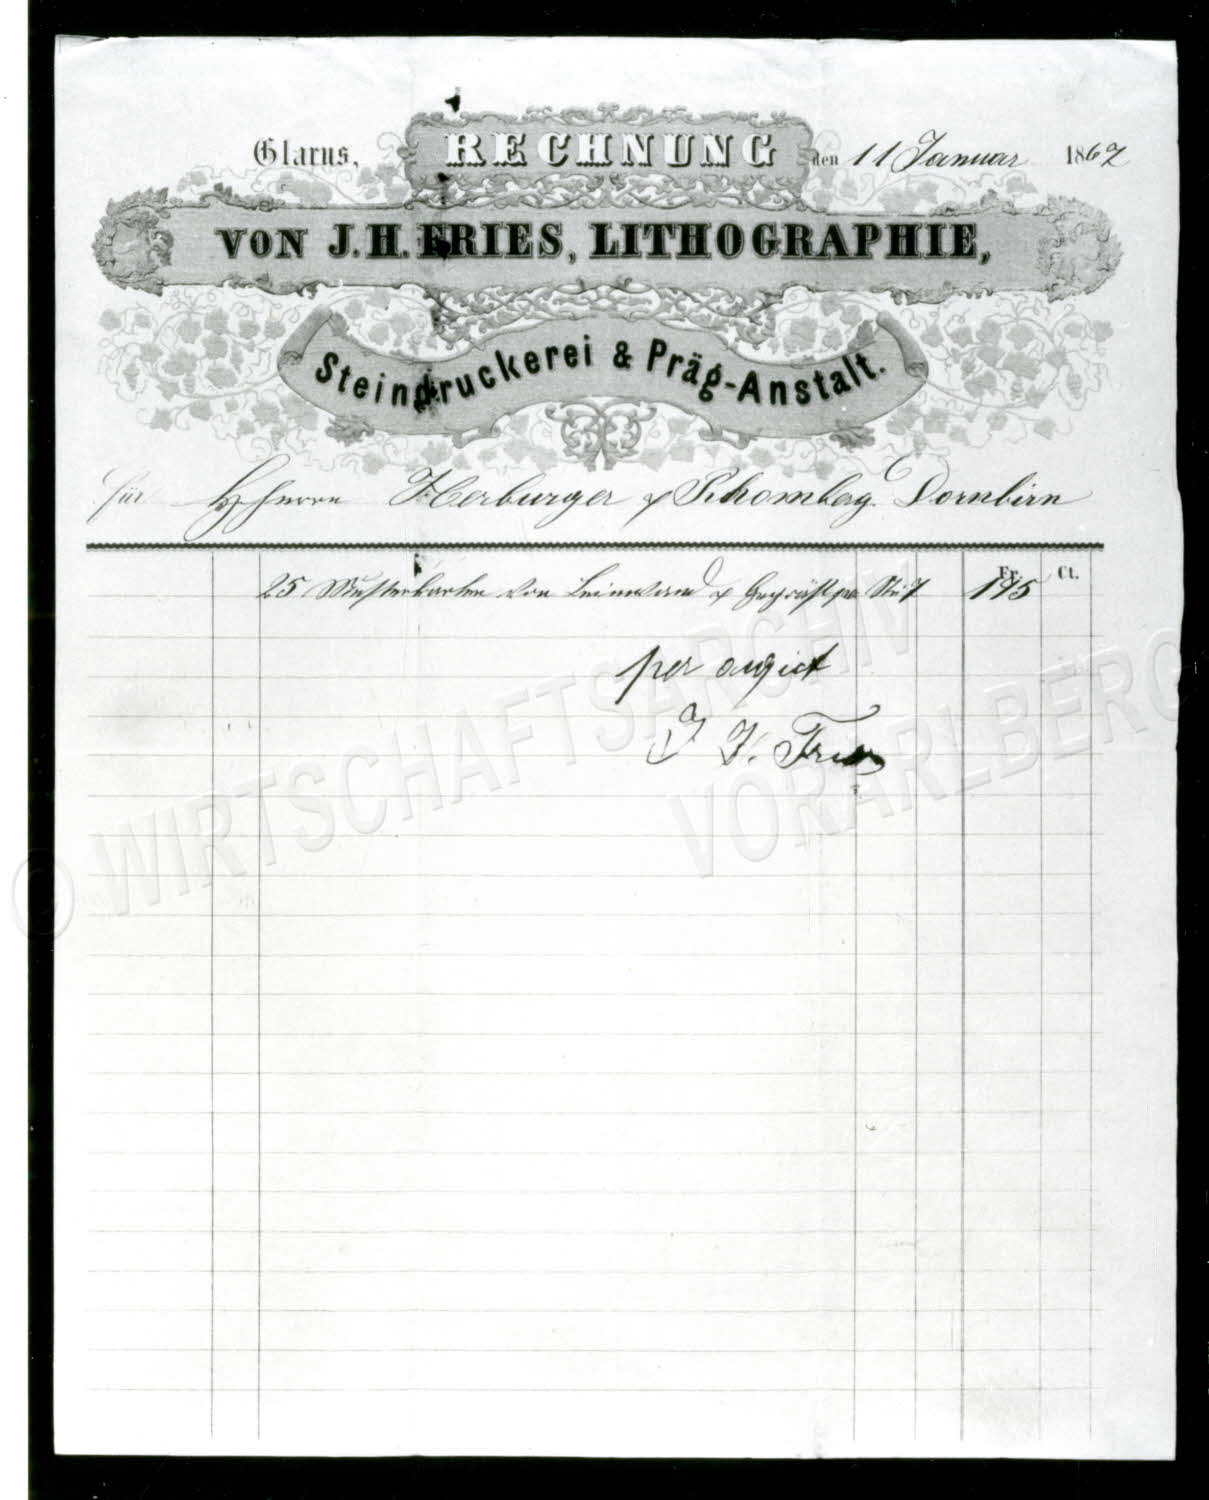 Glarus, RECHNUNG den 11 Januar 1867
VON J. H. FRIES, LITHOGRAPHIE,
Steindruckerei & Präg-Anstalt.
für HHerrn Herburger & Rhomberg. Dornbirn
Fr. Ct.
25 Musterkarten von Leinwand & Gepräst per St. 7 175
per acquit
J H. Fries
© WIRTSCHAFTSARCHIV
VORARLBERG